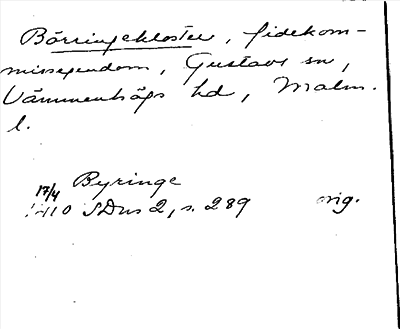 Börringekloster, fidekom-
missegendom, Gustavs sn,
Vämmenhögs hd, Malm.
l.
Byringe
17/4
1410 SDns 2, s. 289 orig.